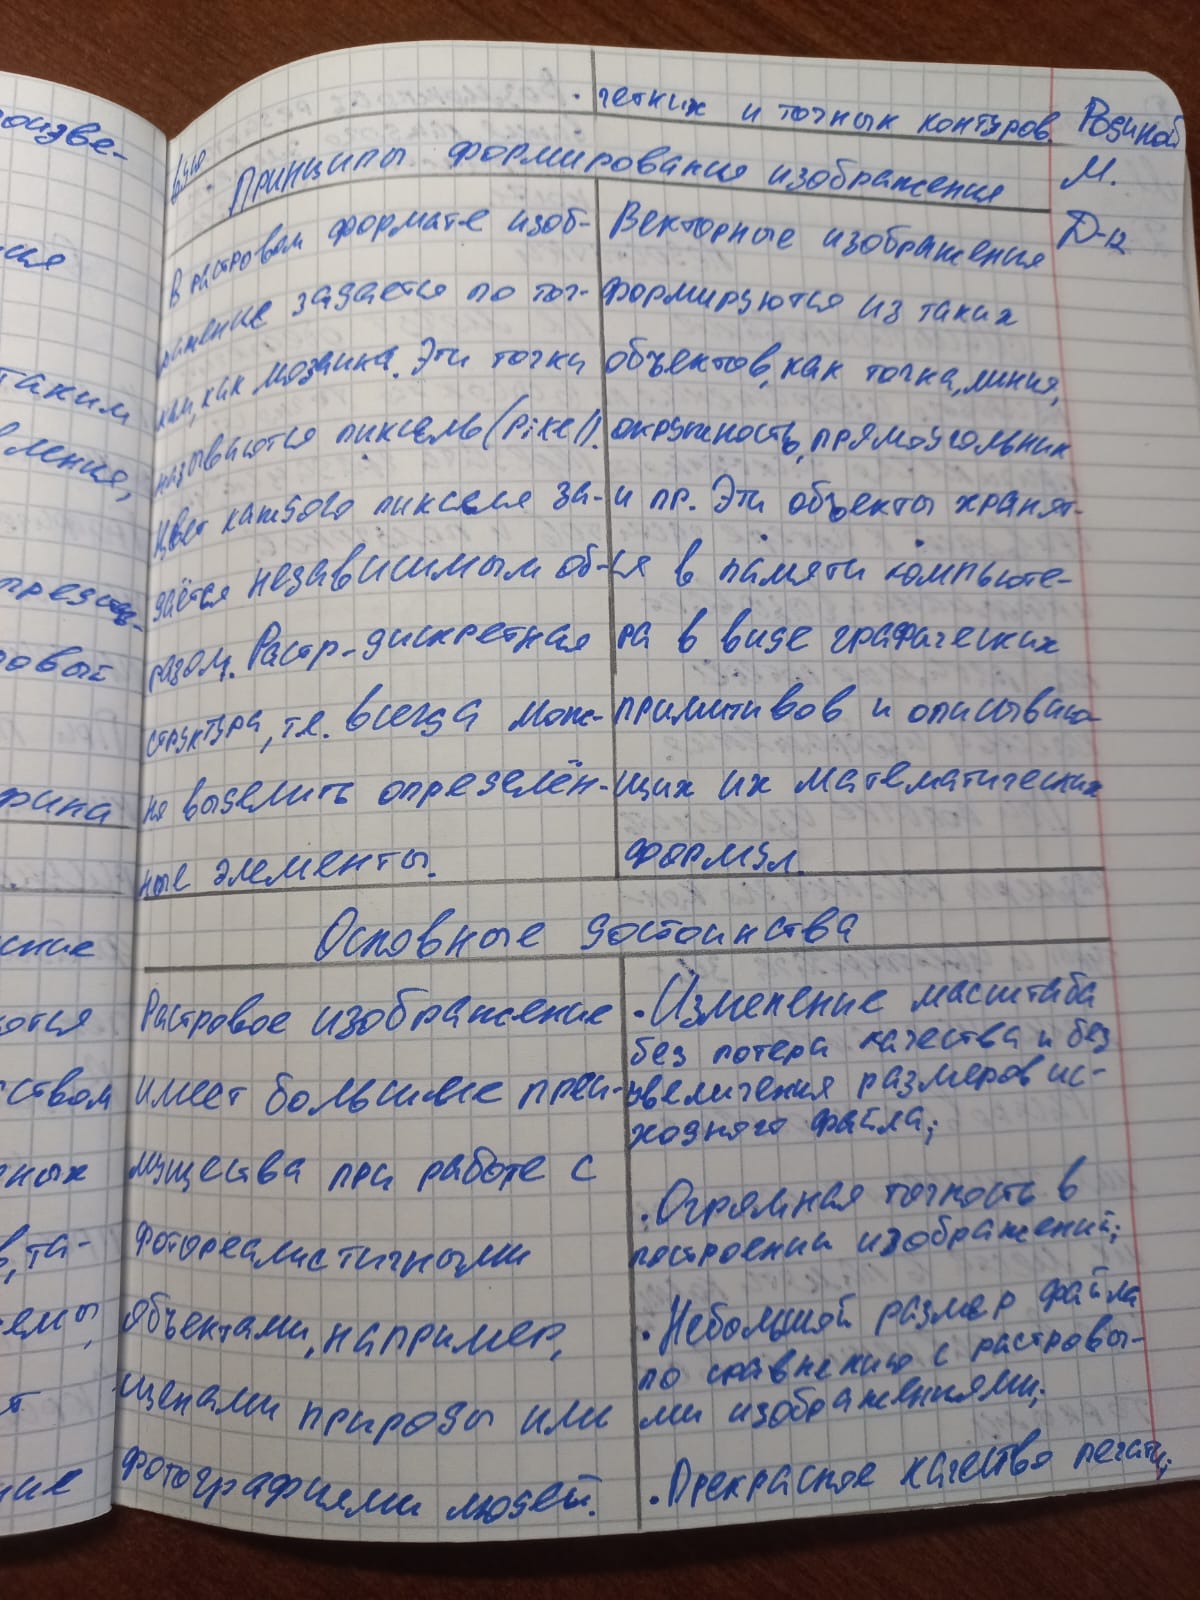 четких и точных контуров.
Родиной
М.
Д-12
Принципы формирования изображения
В растровом формате изоб-
ражение задается по точ-
кам, как мозаика. Эти точки
называются пиксель (Pixel).
Цвет каждого пикселя за-
даётся независимым об-
разом. Растр-дискретная
структура, т.е. всегда мож-
но выделить определён-
ные элементы.
Векторные изображения
формируются из таких
объектов, как точка, линия,
окружность, прямоугольник
и пр. Эти объекты хранят-
ся в памяти компьюте-
ра в виде графических
примитивов и описываю-
щих их математических
формул.
Основные достоинства
Растровое изображение
имеет большие преи-
мущества при работе с
фотореалистичными
объектами, например,
сценами природы или
фотографиями людей.
· Изменение масштаба
без потери качества и без
увеличения размеров ис-
ходного файла;
· Огромная точность в
построении изображений;
· Небольшой размер файла
по сравнению с растровы-
ми изображениями;
· Прекрасное качество печати;
оизве-
таким
вления,
представ-
ством
ных
в, та-